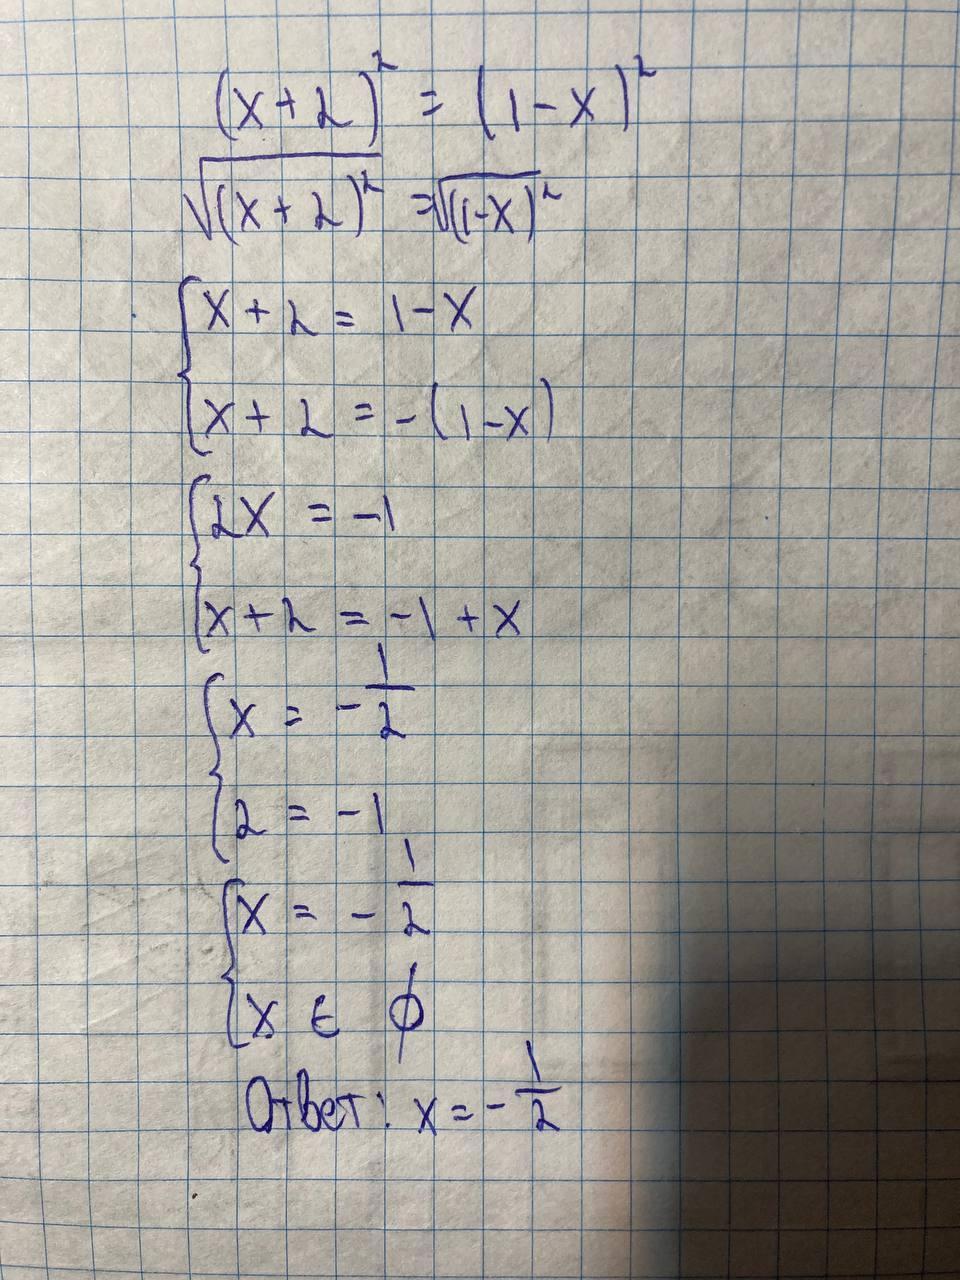 (x+2)² = (1-x)²
√(x+2)² = √(1-x)²
{ x+2 = 1-x
x+2 = -(1-x)
{ 2x = -1
x+2 = -1+x
{ x = -1/2
2 = -1
{ x = -1/2
x ∈ ∅
Ответ: x = -1/2